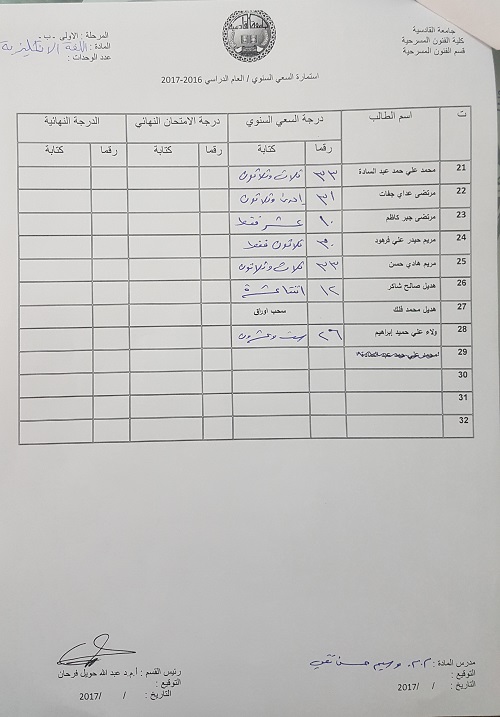 جامعة القادسية
كلية الفنون المسرحية
قسم الفنون المسرحية
المرحلة : الاولى - ب -
المادة : اللغة الانكليزية
عدد الوحدات :
استمارة السعي السنوي / العام الدراسي 2016-2017
ت اسم الطالب درجة السعي السنوي درجة الامتحان النهائي الدرجة النهائية
رقما كتابة رقما كتابة رقما كتابة
21 محمد علي حمد عبد السادة ٣٣ ثلاث وثلاثون
22 مرتضى عداي جفات ٣١ احدى وثلاثون
23 مرتضى جبر كاظم ١٠ عشر فقط
24 مريم حيدر علي فرهود ٣٠ ثلاثون فقط
25 مريم هادي حسن ٣٣ ثلاث وثلاثون
26 هديل صالح شاكر ١٢ اثنتا عشرة
27 هديل محمد فلك سحب اوراق
28 ولاء علي حميد إبراهيم ٢٦ ست وعشرون
29
30
31
32
مدرس المادة : م.م. وسيم حسن تقي
التوقيع :
التاريخ : / / 2017
رئيس القسم : أ.م.د عبد الله حويل فرحان
التوقيع :
التاريخ : / / 2017